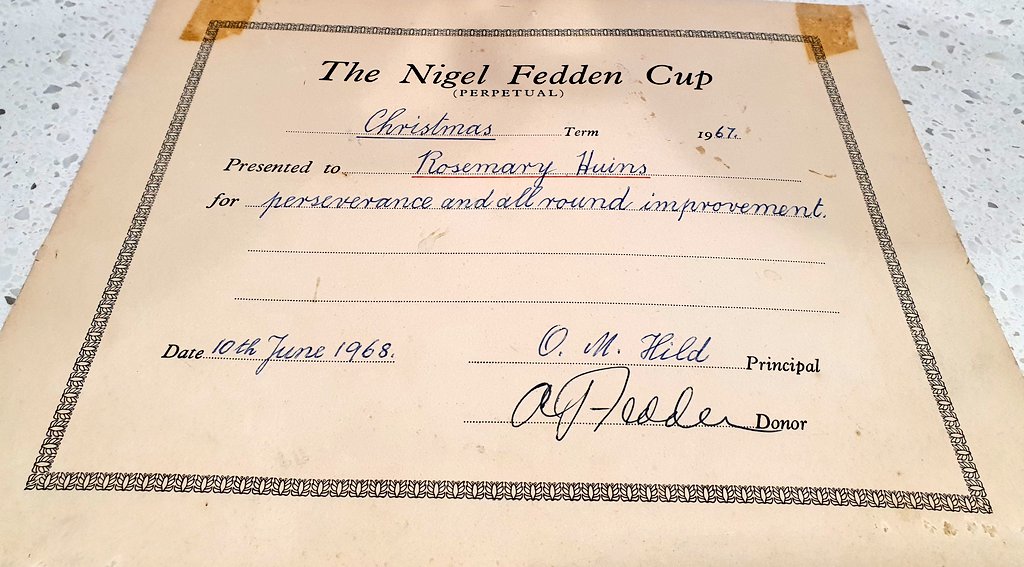 The Nigel Fedden Cup
(PERPETUAL)
Christmas Term 1967.
Presented to Rosemary Huins
for perseverance and all round improvement.
Date 10th June 1968.
O. M. Hild Principal
A G Fedden Donor